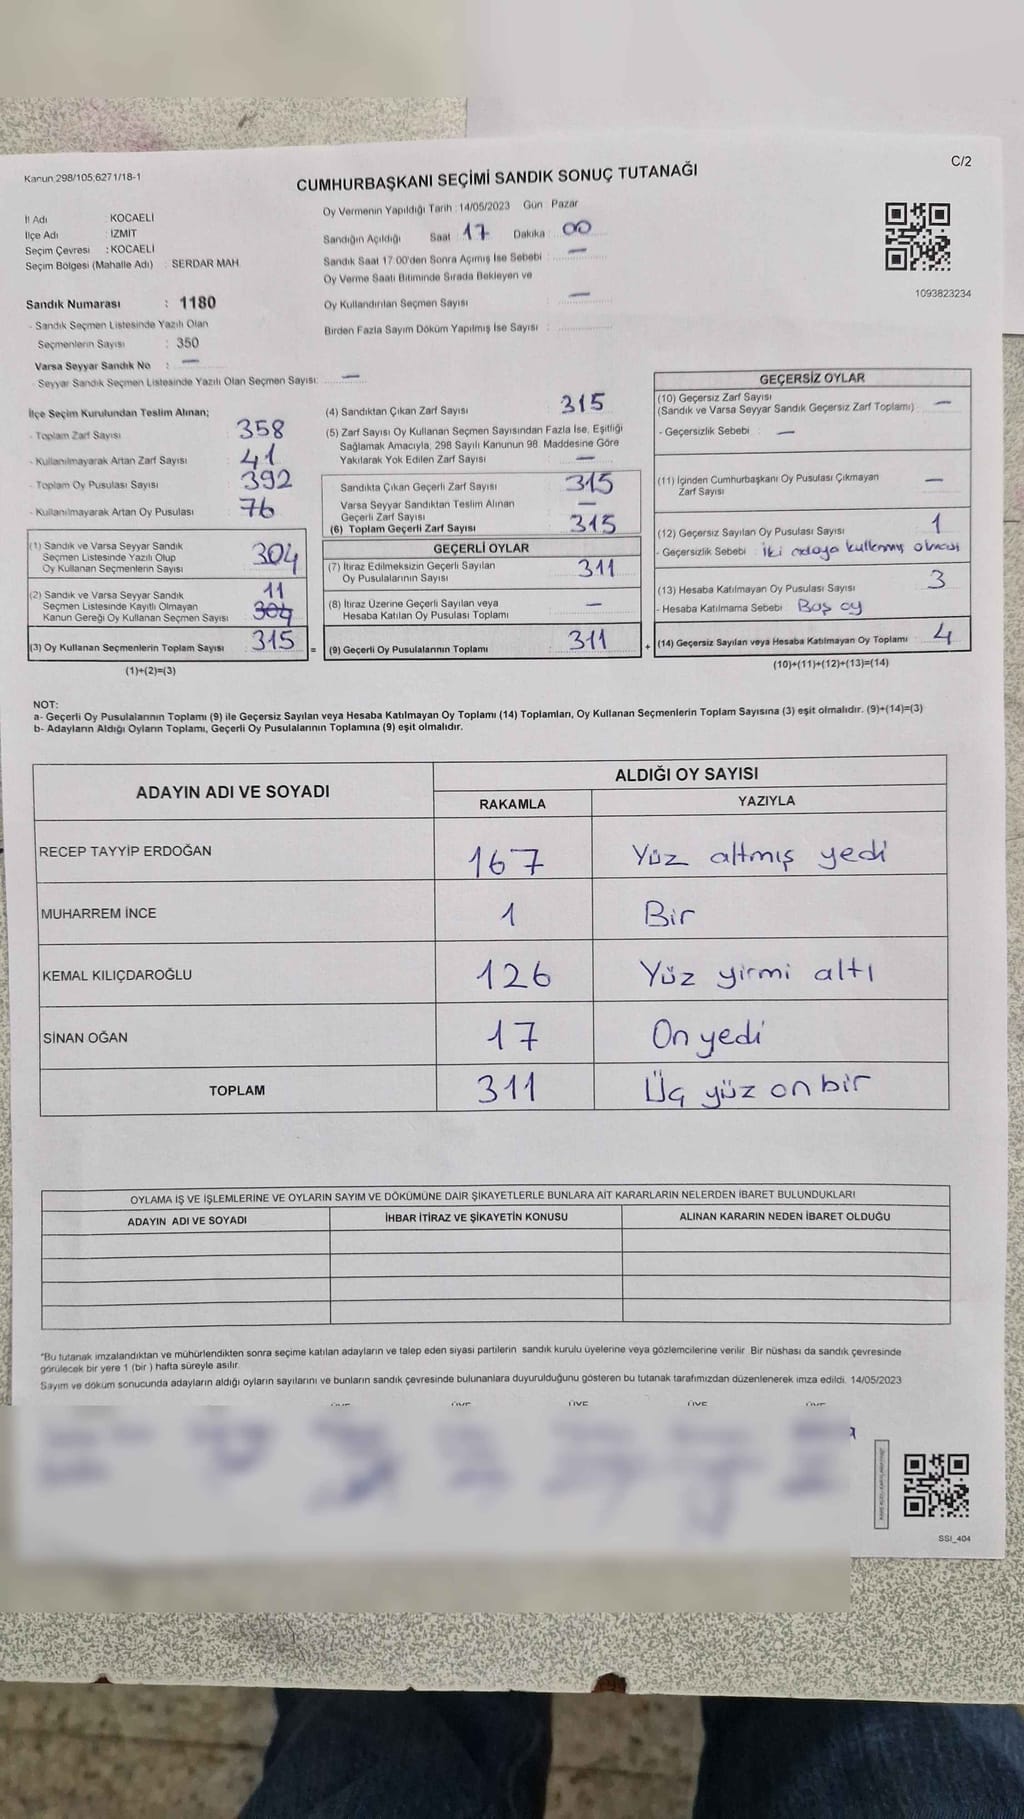 Kanun:298/105;6271/18-1
C/2
CUMHURBAŞKANI SEÇİMİ SANDIK SONUÇ TUTANAĞI
İl Adı : KOCAELİ
İlçe Adı : İZMİT
Seçim Çevresi : KOCAELİ
Seçim Bölgesi (Mahalle Adı) : SERDAR MAH.
Oy Vermenin Yapıldığı Tarih : 14/05/2023 Gün : Pazar
Sandığın Açıldığı Saat : 17 Dakika : 00
Sandık Saat 17:00'den Sonra Açımış İse Sebebi : —
Oy Verme Saati Bitiminde Sırada Bekleyen ve
Oy Kullandırılan Seçmen Sayısı : —
Birden Fazla Sayım Döküm Yapılmış İse Sayısı :
1093823234
Sandık Numarası : 1180
- Sandık Seçmen Listesinde Yazılı Olan
Seçmenlerin Sayısı : 350
Varsa Seyyar Sandık No : —
- Seyyar Sandık Seçmen Listesinde Yazılı Olan Seçmen Sayısı: —
İlçe Seçim Kurulundan Teslim Alınan;
- Toplam Zarf Sayısı 358
- Kullanılmayarak Artan Zarf Sayısı 41
- Toplam Oy Pusulası Sayısı 392
- Kullanılmayarak Artan Oy Pusulası 76
(1) Sandık ve Varsa Seyyar Sandık
Seçmen Listesinde Yazılı Olup
Oy Kullanan Seçmenlerin Sayısı 304
(2) Sandık ve Varsa Seyyar Sandık 11
Seçmen Listesinde Kayıtlı Olmayan
Kanun Gereği Oy Kullanan Seçmen Sayısı 304
(3) Oy Kullanan Seçmenlerin Toplam Sayısı 315 =
(1)+(2)=(3)
(4) Sandıktan Çıkan Zarf Sayısı 315
(5) Zarf Sayısı Oy Kullanan Seçmen Sayısından Fazla İse, Eşitliği
Sağlamak Amacıyla, 298 Sayılı Kanunun 98. Maddesine Göre
Yakılarak Yok Edilen Zarf Sayısı —
Sandıkta Çıkan Geçerli Zarf Sayısı 315
Varsa Seyyar Sandıktan Teslim Alınan
Geçerli Zarf Sayısı —
(6) Toplam Geçerli Zarf Sayısı 315
GEÇERLİ OYLAR
(7) İtiraz Edilmeksizin Geçerli Sayılan
Oy Pusulalarının Sayısı 311
(8) İtiraz Üzerine Geçerli Sayılan veya
Hesaba Katılan Oy Pusulası Toplamı —
(9) Geçerli Oy Pusulalarının Toplamı 311 +
GEÇERSİZ OYLAR
(10) Geçersiz Zarf Sayısı
(Sandık ve Varsa Seyyar Sandık Geçersiz Zarf Toplamı) —
- Geçersizlik Sebebi : —
(11) İçinden Cumhurbaşkanı Oy Pusulası Çıkmayan
Zarf Sayısı —
(12) Geçersiz Sayılan Oy Pusulası Sayısı 1
- Geçersizlik Sebebi : İki adaya kullanmış olması
(13) Hesaba Katılmayan Oy Pusulası Sayısı 3
- Hesaba Katılmama Sebebi : Boş oy
(14) Geçersiz Sayılan veya Hesaba Katılmayan Oy Toplamı 4
(10)+(11)+(12)+(13)=(14)
NOT:
a- Geçerli Oy Pusulalarının Toplamı (9) ile Geçersiz Sayılan veya Hesaba Katılmayan Oy Toplamı (14) Toplamları, Oy Kullanan Seçmenlerin Toplam Sayısına (3) eşit olmalıdır. (9)+(14)=(3)
b- Adayların Aldığı Oyların Toplamı, Geçerli Oy Pusulalarının Toplamına (9) eşit olmalıdır.
ADAYIN ADI VE SOYADI
ALDIĞI OY SAYISI
RAKAMLA YAZIYLA
RECEP TAYYİP ERDOĞAN 167 Yüz altmış yedi
MUHARREM İNCE 1 Bir
KEMAL KILIÇDAROĞLU 126 Yüz yirmi altı
SİNAN OĞAN 17 On yedi
TOPLAM 311 Üç yüz on bir
OYLAMA İŞ VE İŞLEMLERİNE VE OYLARIN SAYIM VE DÖKÜMÜNE DAİR ŞİKAYETLERLE BUNLARA AİT KARARLARIN NELERDEN İBARET BULUNDUKLARI
ADAYIN ADI VE SOYADI İHBAR İTİRAZ VE ŞİKAYETİN KONUSU ALINAN KARARIN NEDEN İBARET OLDUĞU
*Bu tutanak imzalandıktan ve mühürlendikten sonra seçime katılan adayların ve talep eden siyasi partilerin sandık kurulu üyelerine veya gözlemcilerine verilir. Bir nüshası da sandık çevresinde
görülecek bir yere 1 (bir ) hafta süreyle asılır.
Sayım ve döküm sonucunda adayların aldığı oyların sayılarını ve bunların sandık çevresinde bulunanlara duyurulduğunu gösteren bu tutanak tarafımızdan düzenlenerek imza edildi. 14/05/2023
SSI_404